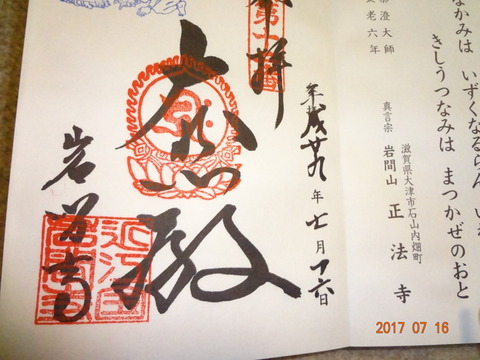 なかみは いずくなるらん いわ
きしうつなみは まつかぜのおと
滋賀県大津市石山内畑町
真言宗 岩間山 正法寺
澄大師
老六年
平成廿九年七月十六日
拝
大悲殿
岩間寺
2017 07 16